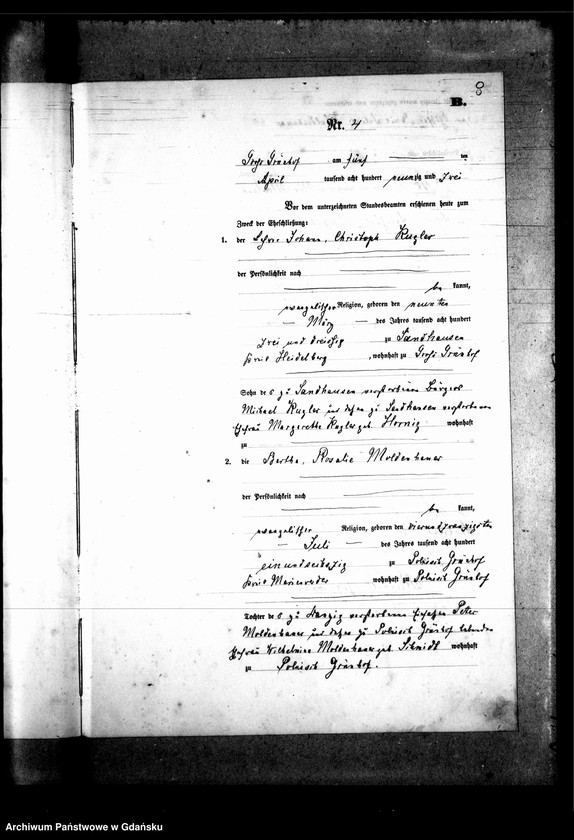 8
B.
Nr. 4
Groß Grünhof am fünf ten
April tausend acht hundert neunzig und drei
Vor dem unterzeichneten Standesbeamten erschienen heute zum
Zweck der Eheschließung:
1. der Johann, Christoph Kugler
der Persönlichkeit nach
be kannt,
evangelischer Religion, geboren den neunten
März des Jahres tausend acht hundert
drei und dreißig zu Sandhausen
Kreis Heidelberg, wohnhaft zu Groß Grünhof
Sohn des zu Sandhausen verstorbenen Bürgers
Michael Kugler und dessen zu Sandhausen verstorbenen
Ehefrau Margaretha Kugler geb. Hornig wohnhaft
zu
2. die Bertha, Rosalie Moldenhauer
der Persönlichkeit nach
be kannt,
evangelischer Religion, geboren den vierundzwanzigsten
Juli des Jahres tausend acht hundert
einundsechzig zu Polnisch Grünhof
Kreis Marienwerder wohnhaft zu Polnisch Grünhof
Tochter des zu Danzig verstorbenen Peter
Moldenhauer und dessen zu Polnisch Grünhof lebenden
Ehefrau Wilhelmine Moldenhauer geb. Schmidt wohnhaft
zu Polnisch Grünhof.
Archiwum Państwowe w Gdańsku